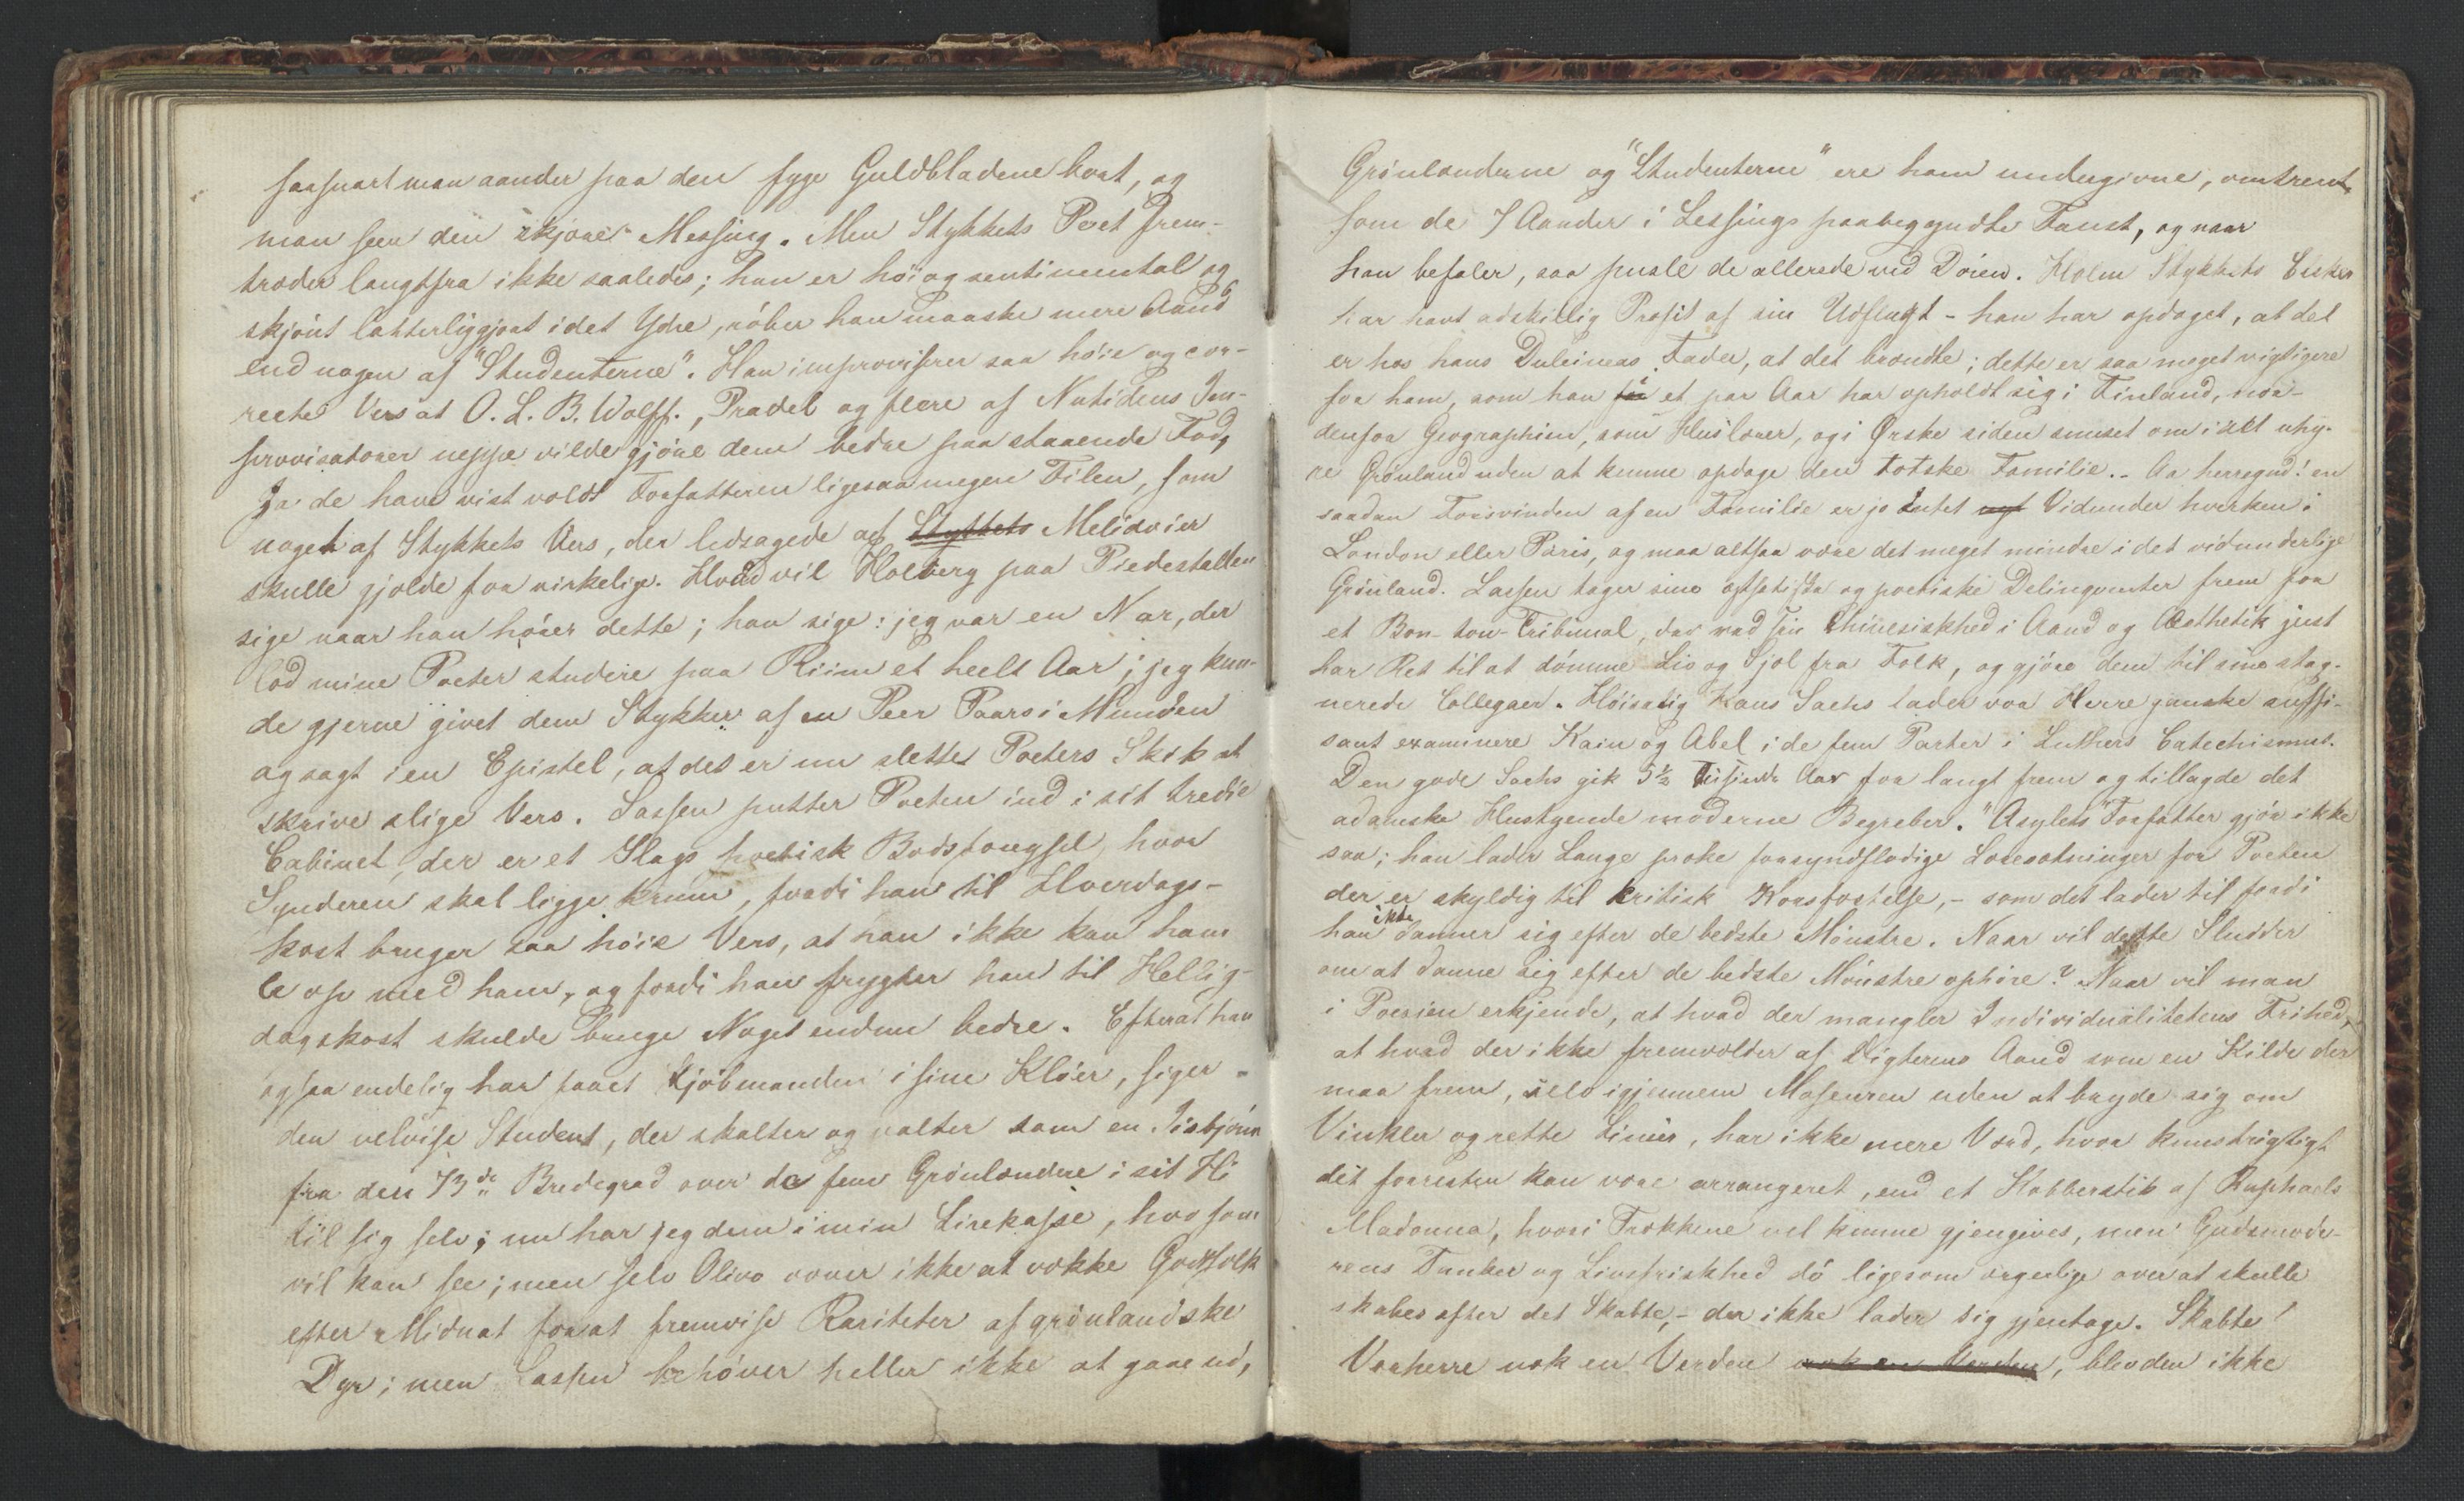 saasnart man aander paa den fyge Guldbladene bort, og
man seer den skjøre Messing. Men Stykkets Poet frem-
træder langtfra ikke saaledes; han er høi og sentimental og
skjønt latterliggjort i det Ydre, røber han maaske mere Aand
end nogen af "Studenterne". Han improviserer saa høie og cor-
recte Vers at O. L. B. Wolff., Pradel og flere af Nutidens Im-
provisatorer neppe vilde gjøre dem bedre paa staaende Fod,
Ja de have vist voldt Forfatteren ligesaamegen Filen, som
noget af Stykkets Vers, der ledsagede af Stykkets Melidvier
skulle gjelde for virkelige. Hvad vil Holberg paa Piedestallen
sige naar han hører dette; han sige: jeg var en Nar, der
lod mine Poeter studere paa Riim et heelt Aar; jeg kun-
de gjerne givet dem Stykker af en Peer Paars i Munden
og sagt i en Epistel, at det er nu slette Poeters Skik at
skrive slige Vers. Lassen putter Poeten ind i sit tredie
Cabinet, der er et Slags poetisk Bodsfængsel, hvor
Synderen skal ligge krum, fordi han til Hverdags-
kost bruger saa høie Vers, at han ikke kan ham-
le op med ham, og fordi han frygter han til Hellig-
dagskost skulde bruge Noget endnu bedre. Efterat han
ogsaa endelig har faaet Kjøbmanden i sine Kløer, siger
den velvise Student, der skalter og valter som en Iisbjørn
fra den 73de Bredegrad over de fem Grønlændere i sit Hi
til sig selv; nu har jeg dem i min Lirekasse, hvo som
vil kan see; men selv Olivo vover ikke at vække Godtfolk
efter Midnat for at fremvise Rariteter af grønlandske
Dyr; men Lassen behøver heller ikke at gaae ud,
Grønlænderne og "Studenterne" ere ham undergivne, omtrent
som de 7 Aander i Lessings paabegyndte Faust, og naar
han befaler, saa pusle de allerede ved Døren. Holm Stykkets Elsker
har havt adskillig Profit af sin Udflugt - han har opdaget, at det
er hos hans Dulcineas Fader, at det brændte; dette er saa meget vigtigere
for ham, som han et par Aar har opholdt sig i Finland, uden-
denfor Geographien, som Huuslærer, og i Ørske siden snuset om i alt uhy-
re Grønland uden at kunne opdage den totske Familie.. Aa herregud! en
saadan Forsvinden af en Familie er jo Intet nyt Vidunder hverken i
London eller Paris, og maa altsaa være det meget mindre i det vidunderlige
Grønland. Lassen tager sine og poetiske Delinqventer frem for
et Bon-ton-Tribunal, der ved sin Chinesiskhed i Aand og Æsthetik just
har Ret til at dømme Liv og Sjæl fra Folk, og gjøre dem til sine stag-
nerede Collegaer. Høisalig Hans Sachs lader vor Herre ganske suffi-
sant examinere Kain og Abel i de fem Parter i Luthers Catechismus.
Den gode Sachs gik 5½ Tusinde Aar for langt frem og tillagde det
adamske Huusgesinde moderne Begreber. "Asylets" Forfatter gjør ikke
saa; han lader Lange proke forsyndflodige Læresætninger for Poeten
der er skyldig til kritisk Korsfæstelse, - som det lader til fordi
han ikke danner sig efter de bedste Mønstre. Naar vil dette Sludder
om at danne sig efter de bedste Mønstre ophøre? Naar vil man
i Poesien erkjende, at hvad der mangler Individualitetens Frihed,
at hvad der ikke fremvælder af Digterens Aand som en Kilde der
maa frem, selv igjennem Moseuren uden at bryde sig om
Vinkler og rette Linier, har ikke mere Værd, hvor kunstrigtigt
det forresten kan være arrangeret, end et Kobberstik af Raphaels
Madonna, hvori Trækkene vel kunne gjengives, men Gudsmode-
rens Tanker og Livsfriskhed dø ligesom ærgerlige over at skulle
skabes efter det Skabte, - der ikke lader sig gjentage. Skabte
Vorherre nok en Verden nok en Verden, blev den ikke